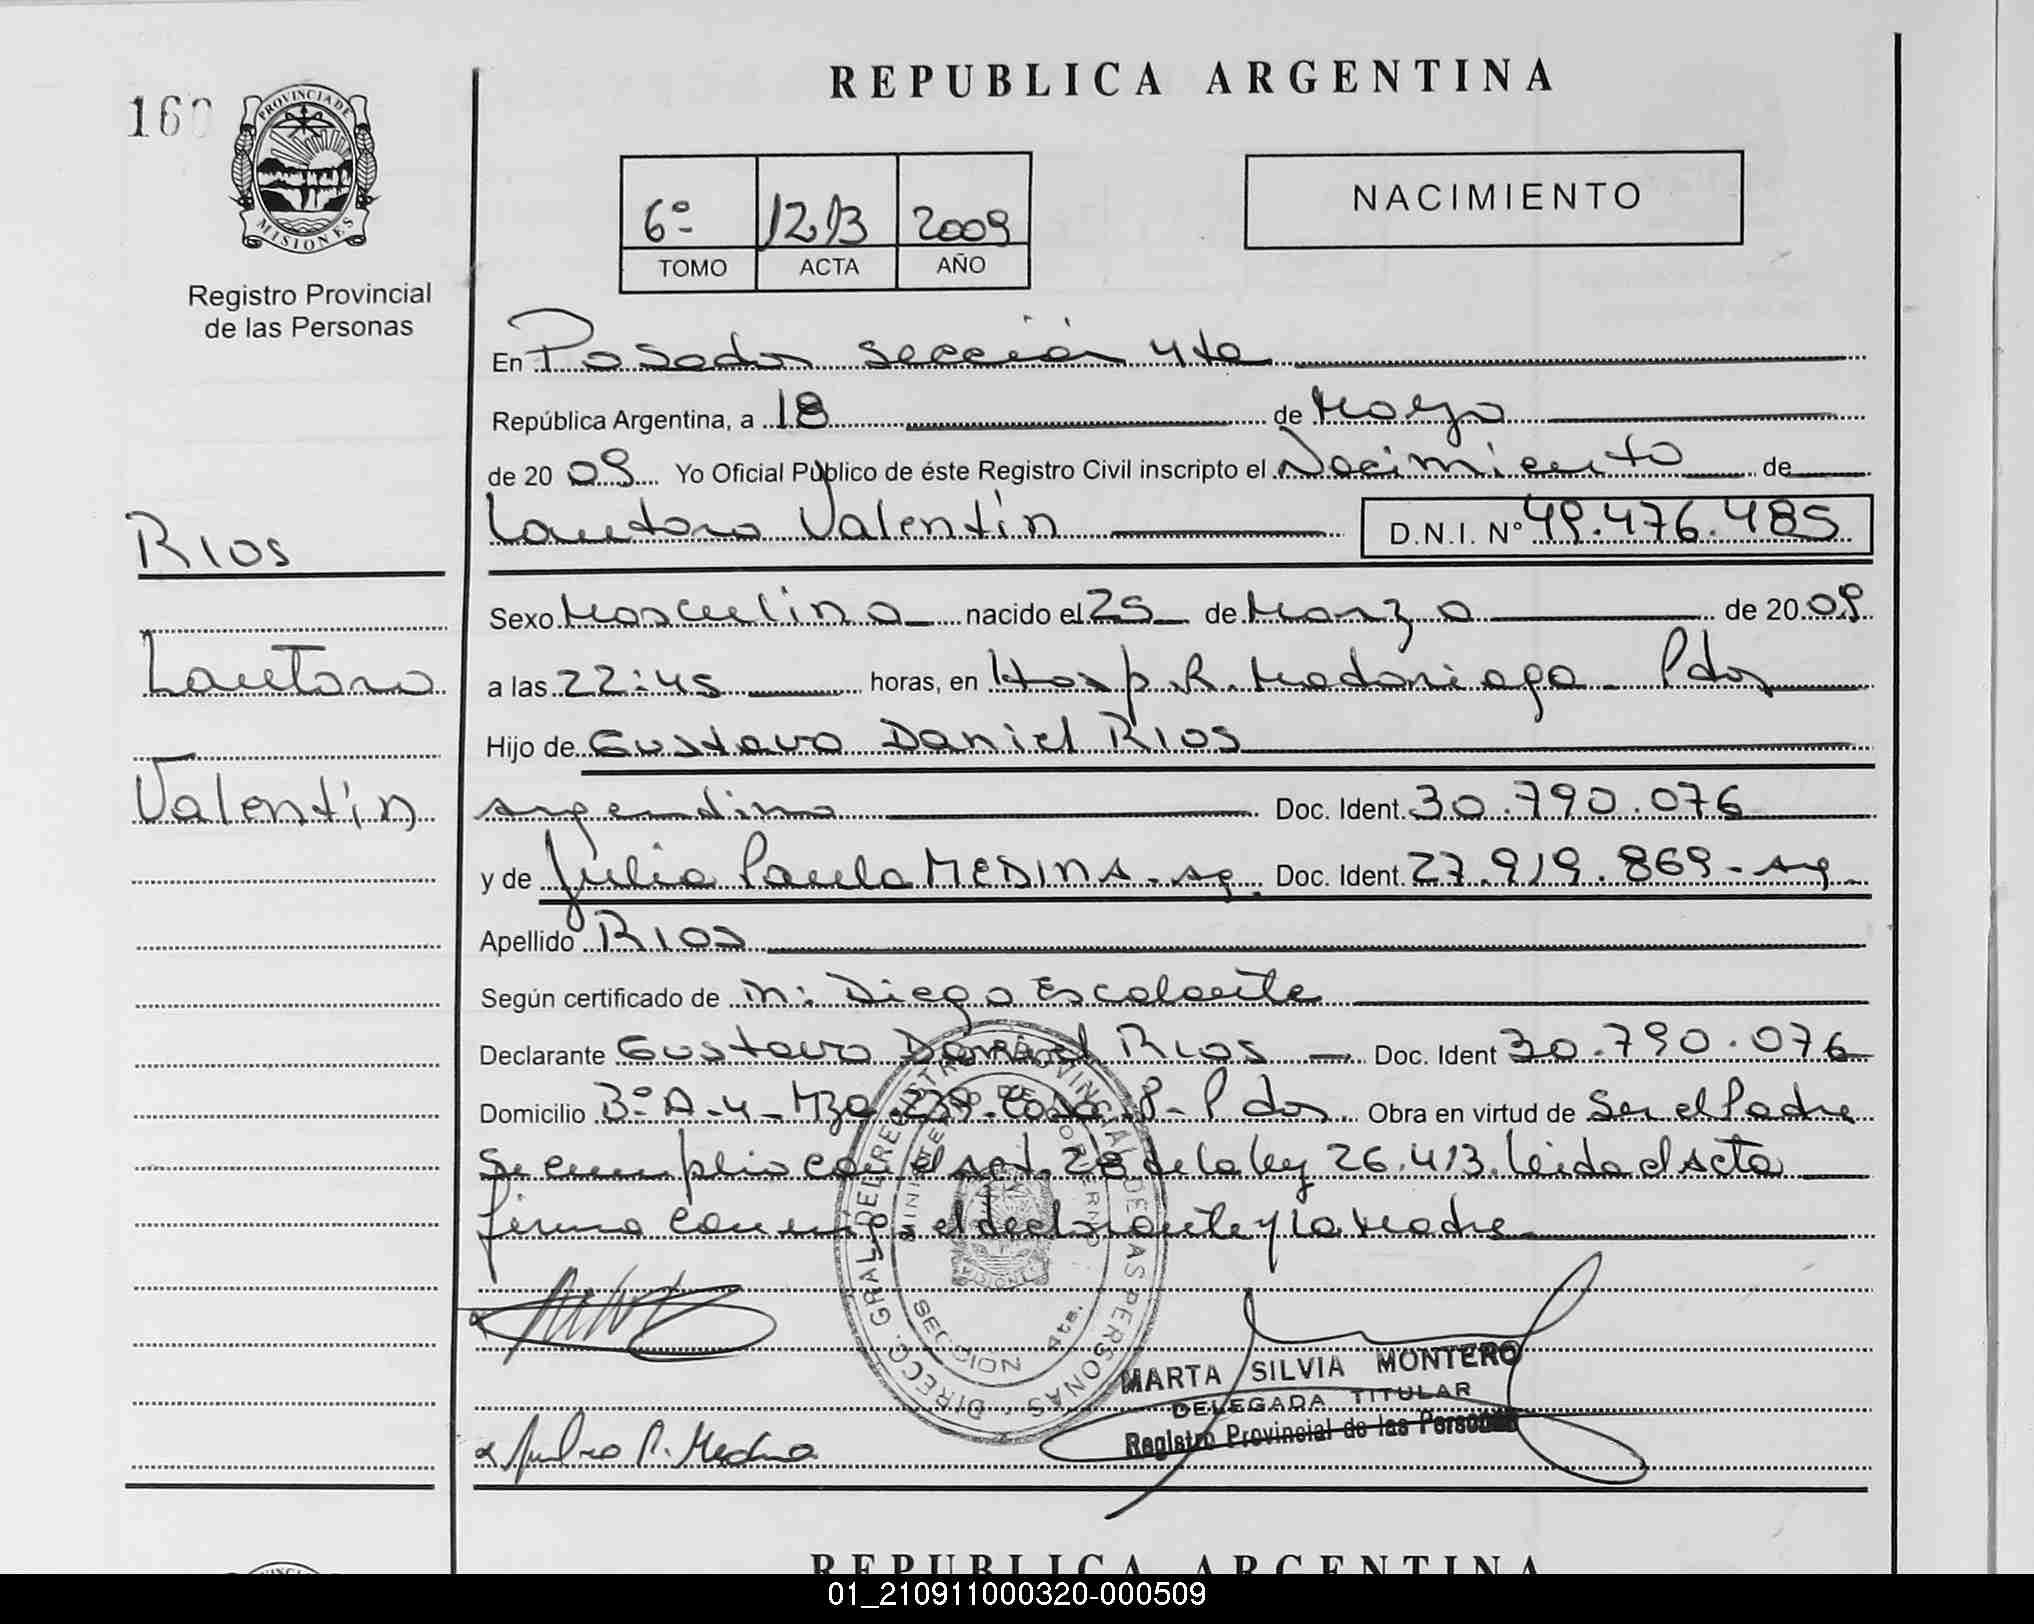 REPUBLICA ARGENTINA
160
PROVINCIA DE
MISIONES
Registro Provincial
de las Personas
6º 1213 2009
TOMO ACTA AÑO
NACIMIENTO
En Posadas sección 4ta
República Argentina, a 18 de Mayo
de 20 09 Yo Oficial Público de éste Registro Civil inscripto el Nacimiento de
Lautaro Valentín D.N.I. Nº 49.476.485
RIOS
Lautaro
Valentín
Sexo Masculino nacido el 25 de Marzo de 20 09
a las 22:45 horas, en Hosp. R. Madariaga - Pdas
Hijo de Gustavo Daniel RIOS
argentino Doc. Ident. 30.790.076
y de Julia Paula MEDINA - arg. Doc. Ident. 27.919.869 - arg.
Apellido RIOS
Según certificado de m: Diego Escalante
Declarante Gustavo Daniel Rios Doc. Ident 30.790.076
Domicilio Bº A-4 - Mza 239 - Casa 8 - Pdas Obra en virtud de Ser el Padre
Se cumplio con el art. 28 de la ley 26.413. leida el Acta
firma con mi el declarante y la Madre
DIRECC. GRAL. DEL REGISTRO PROVINCIAL DE LAS PERSONAS
MINISTERIO DE GOBIERNO
MISIONES
SECCION 4ta.
MARTA SILVIA MONTERO
DELEGADA TITULAR
Registro Provincial de las Personas
P. Medina
REPUBLICA ARGENTINA
01_210911000320-000509